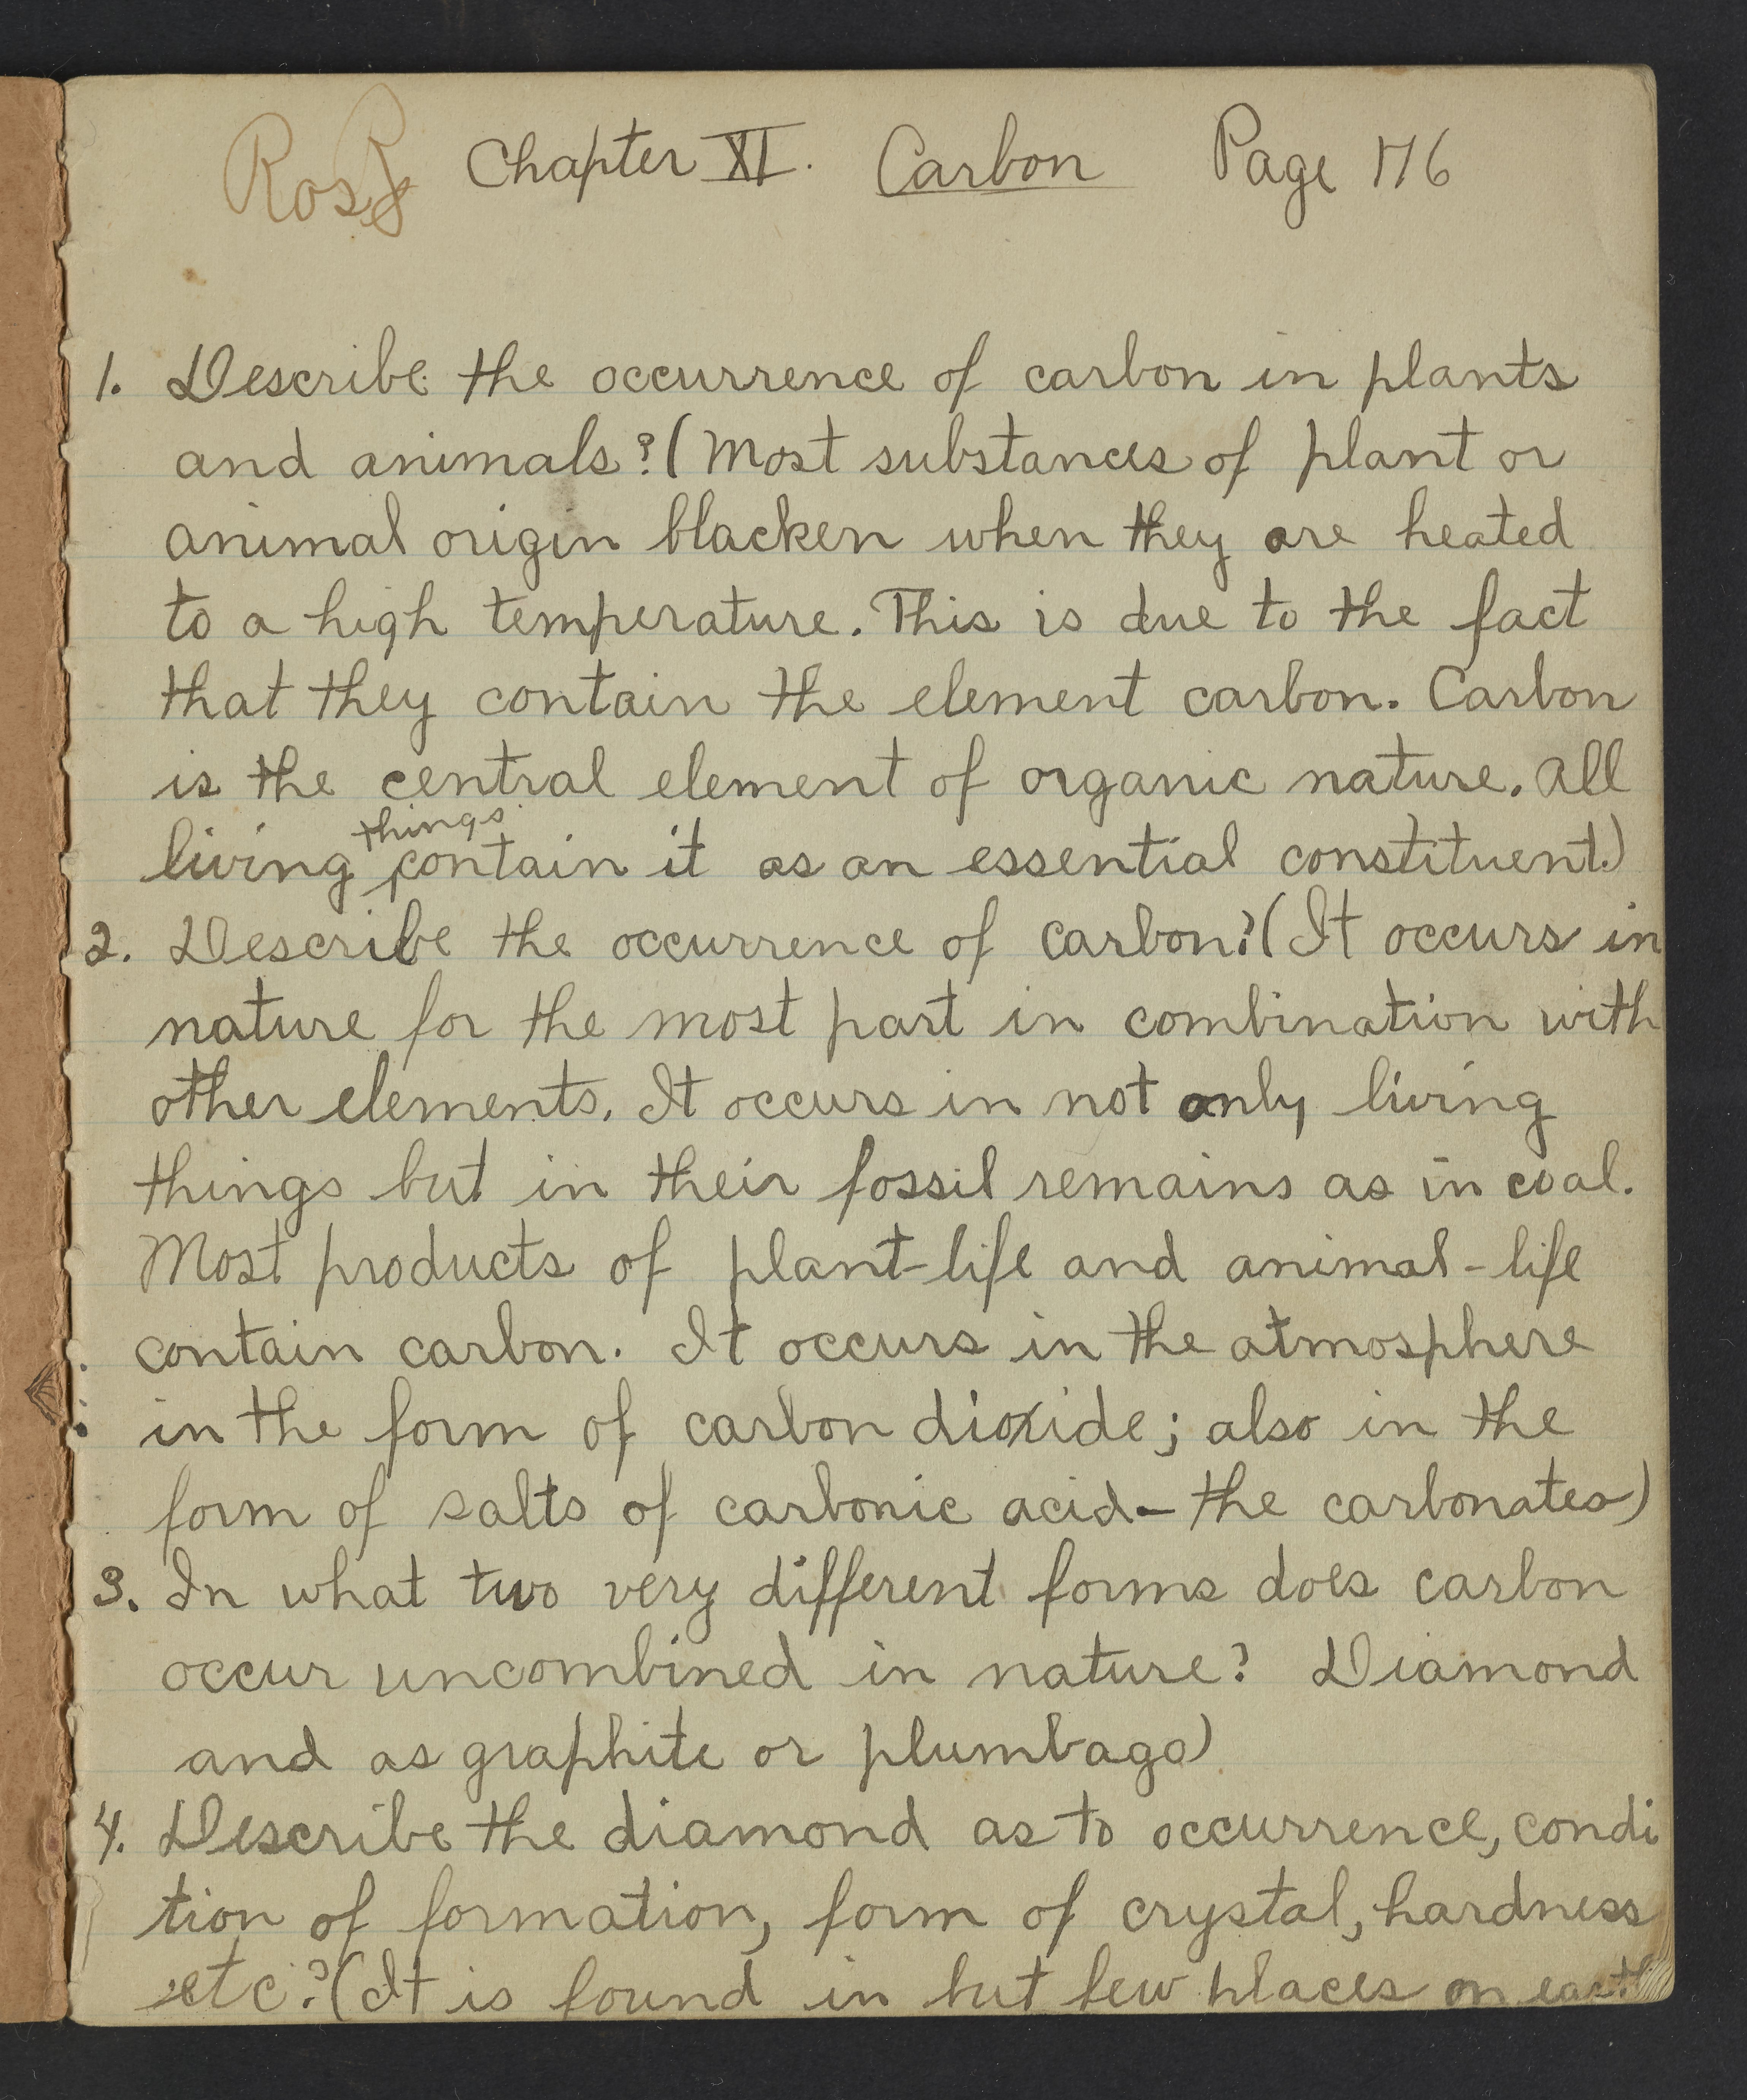 Ross Chapter XI. Carbon Page 176
1. Describe the occurrence of carbon in plants
and animals? (Most substances of plant or
animal origin blacken when they are heated
to a high temperature. This is due to the fact
that they contain the element carbon. Carbon
is the central element of organic nature. All
things
living contain it as an essential constituent.)
2. Describe the occurrence of carbon? (It occurs in
nature for the most part in combination with
other elements. It occurs in not only living
things but in their fossil remains as in coal.
Most products of plant-life and animal-life
contain carbon. It occurs in the atmosphere
in the form of carbon dioxide; also in the
form of salts of carbonic acid - the carbonates)
3. In what two very different forms does carbon
occur uncombined in nature? Diamond
and as graphite or plumbago)
4. Describe the diamond as to occurrence, condi
tion of formation, form of crystal, hardness
etc.? (It is found in but few places on earth